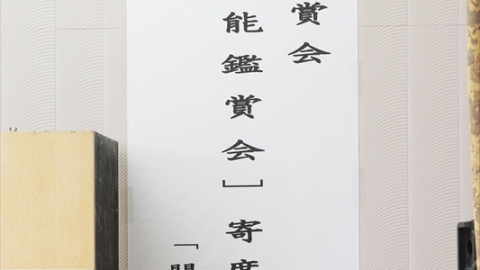 賞会
能鑑賞会］寄席
「開